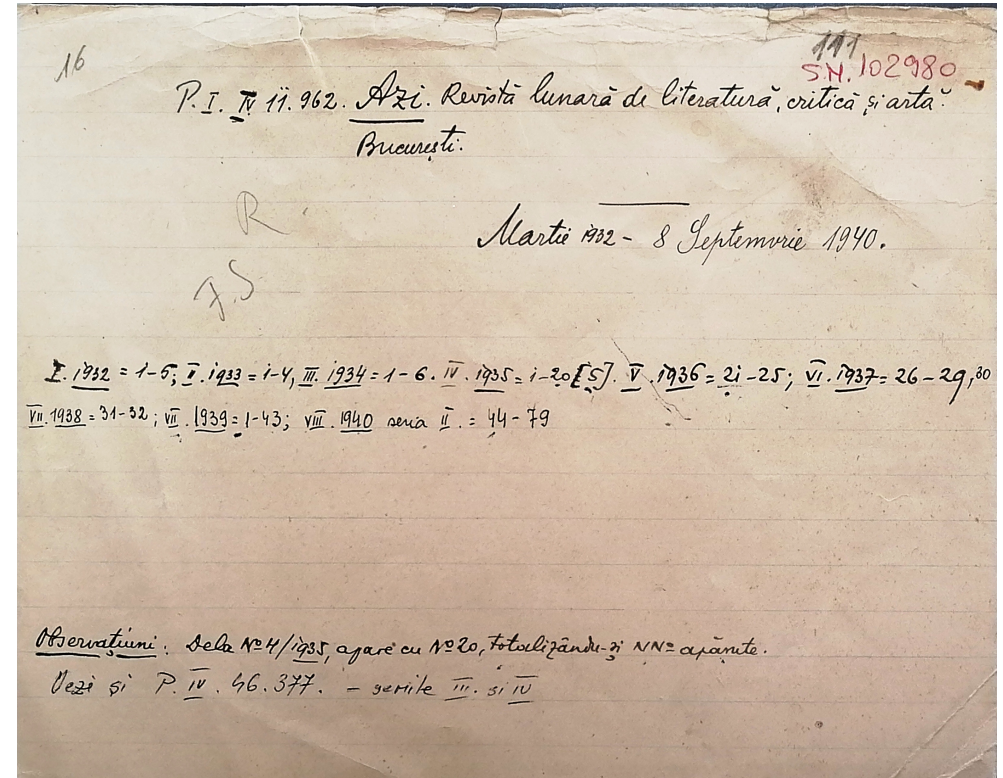 16
111
S.N. 102980
P.I. IV 11.962. Azi. Revistă lunară de literatură, critică și artă.
București.
R
Martie 1932 - 8 Septemvrie 1940.
F.S
I. 1932 = 1-5; II. 1933 = 1-4, III. 1934 = 1-6. IV. 1935 = 1-20 [5]. V. 1936 = 21-25; VI. 1937 = 26-29, 30
VII. 1938 = 31-32; VII. 1939 = 1-43; VIII. 1940 seria II. = 44-79
Observațiuni. Dela Nº 4/1935, apare cu Nº 20, totalizându-și NNº apărute.
Vezi și P. IV. 46.377. - seriile III. si IV